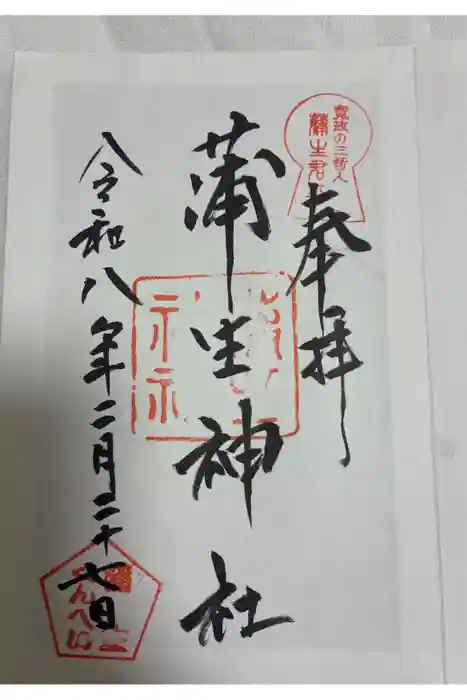 寛政の三哲人
蒲生君平
奉拝
蒲生神社
令和八年二月二十七日